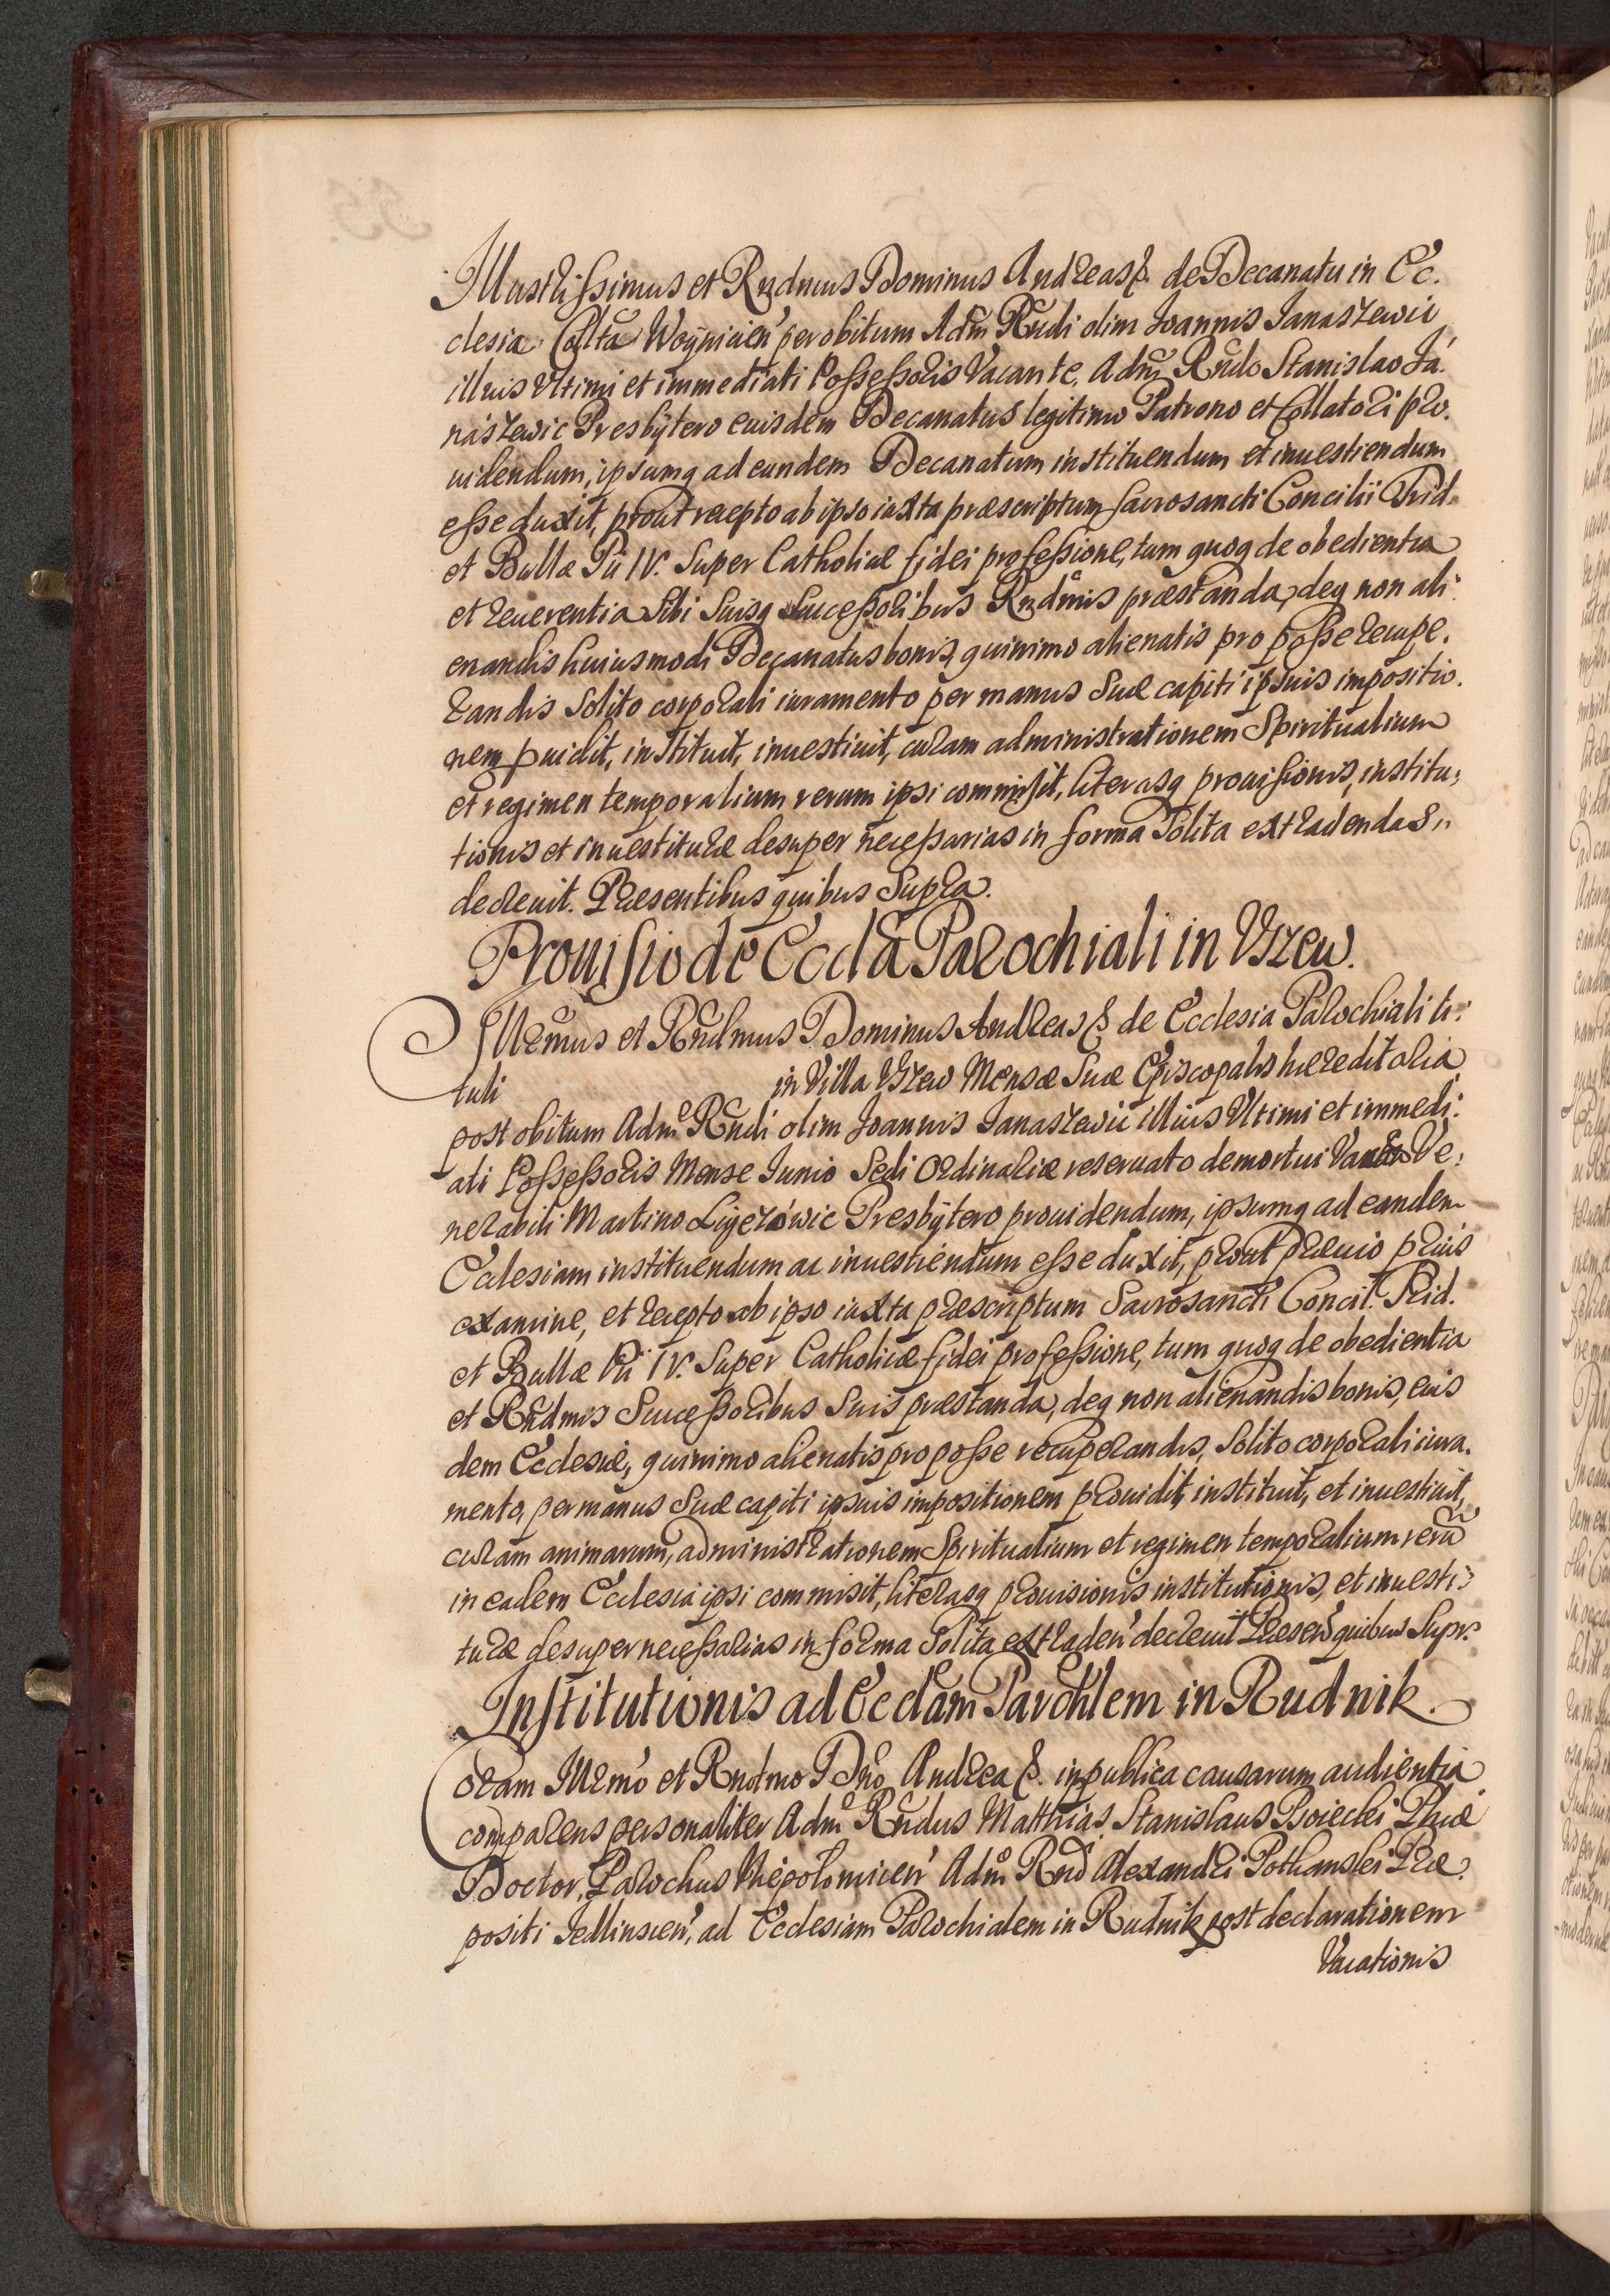 Illustrissimus et Rndmus Dominus Andreas &. de Decanatu in Ec.
clesia Collta Woynicien per obitum Adm Rndi olim Joannis Janaszewic
illius Vltimi et immediati Possessoris Vacante, Adm Rndo Stanislao Ja.
naszewic Presbÿtero euisdem Decanatus legitimo Patrono et Collatori pro.
uidendum, ipsumq ad eundem Decanatum instituendum et inuestiendum
esse duxit, prout recepto ab ipso iuxta præscriptum Sacrosancti Concilii Trid.
et Bullæ Pii IV. Super Catholicæ fidei professione, tum quoq de obedientia
et reuerentia Sibi Suisq Successoribus Rndmis præstanda, deq non ali:
enandis huiusmodi Decanatus bonis, quinimo alienatis pro posse recupe.
randis Solito corporali iuramento per manus Suæ capiti ipsius impositio.
nem puidit, instituit, inuestiuit, curam administrationem Spiritualium
et regimen temporalium rerum ipsi commisit, literasq prouisionis, institu:
tionis et inuestituræ desuper necessarias in forma Solita extradendas
decreuit. Præsentibus quibus Supra.
Prouisio de Eccla Parochiali in Vszew.
Illrmus et Rndmus Dominus Andreas &. de Ecclesia Parochiali ti:
tuli in Villa Vszew Mensæ Suæ Episcopalis hæreditaria
post obitum Adm Rndi olim Joannis Janaszewic illius Vltimi et immedi:
ati Possessoris Mense Junio Sedi Ordinariæ reseruato demortui Ve:
nerabili Martino Ligęzówic Presbÿtero prouidendum, ipsumq ad eandem
Ecclesiam instituendum ac inuestiendum esse duxit, prout præuio prius
examine, et recepto ab ipso iuxta præscriptum Sacrosancti Concil. Trid.
et Bullæ Pii IV. Super Catholicæ fidei professione, tum quoq de obedientia
et Rndmis Successoribus Suis præstanda, deq non alienandis bonis, euis
dem Ecclesiæ, quinimo alienatis pro posse recuperandis, Solito corporali iura.
mento, per manus Suæ capiti ipsius impositionem prouidit, instituit, et inuestiuit,
curam animarum, administrationem Spiritualium et regimen temporalium rerū
in eadem Ecclesia ipsi commisit, literasq prouisionis institutionis, et inuesti:
turæ desuper necessarias in forma Solita extraden decreuit Præsen quibus Supr.
Institutionis ad Ecclam Parohlem in Rudnik.
Coram Illrmo et Rndmo Dno Andrea &. in publica causarum audientia
comparens personaliter Adm Rndus Matthias Stanislaus Phiæ
Doctor, Parochus Niepolomicen Adm Rnd Alexandri Pothanski Præ.
positi Jedlinscen, ad Ecclesiam Parochialem in Rudnik post declarationem
Vacationis